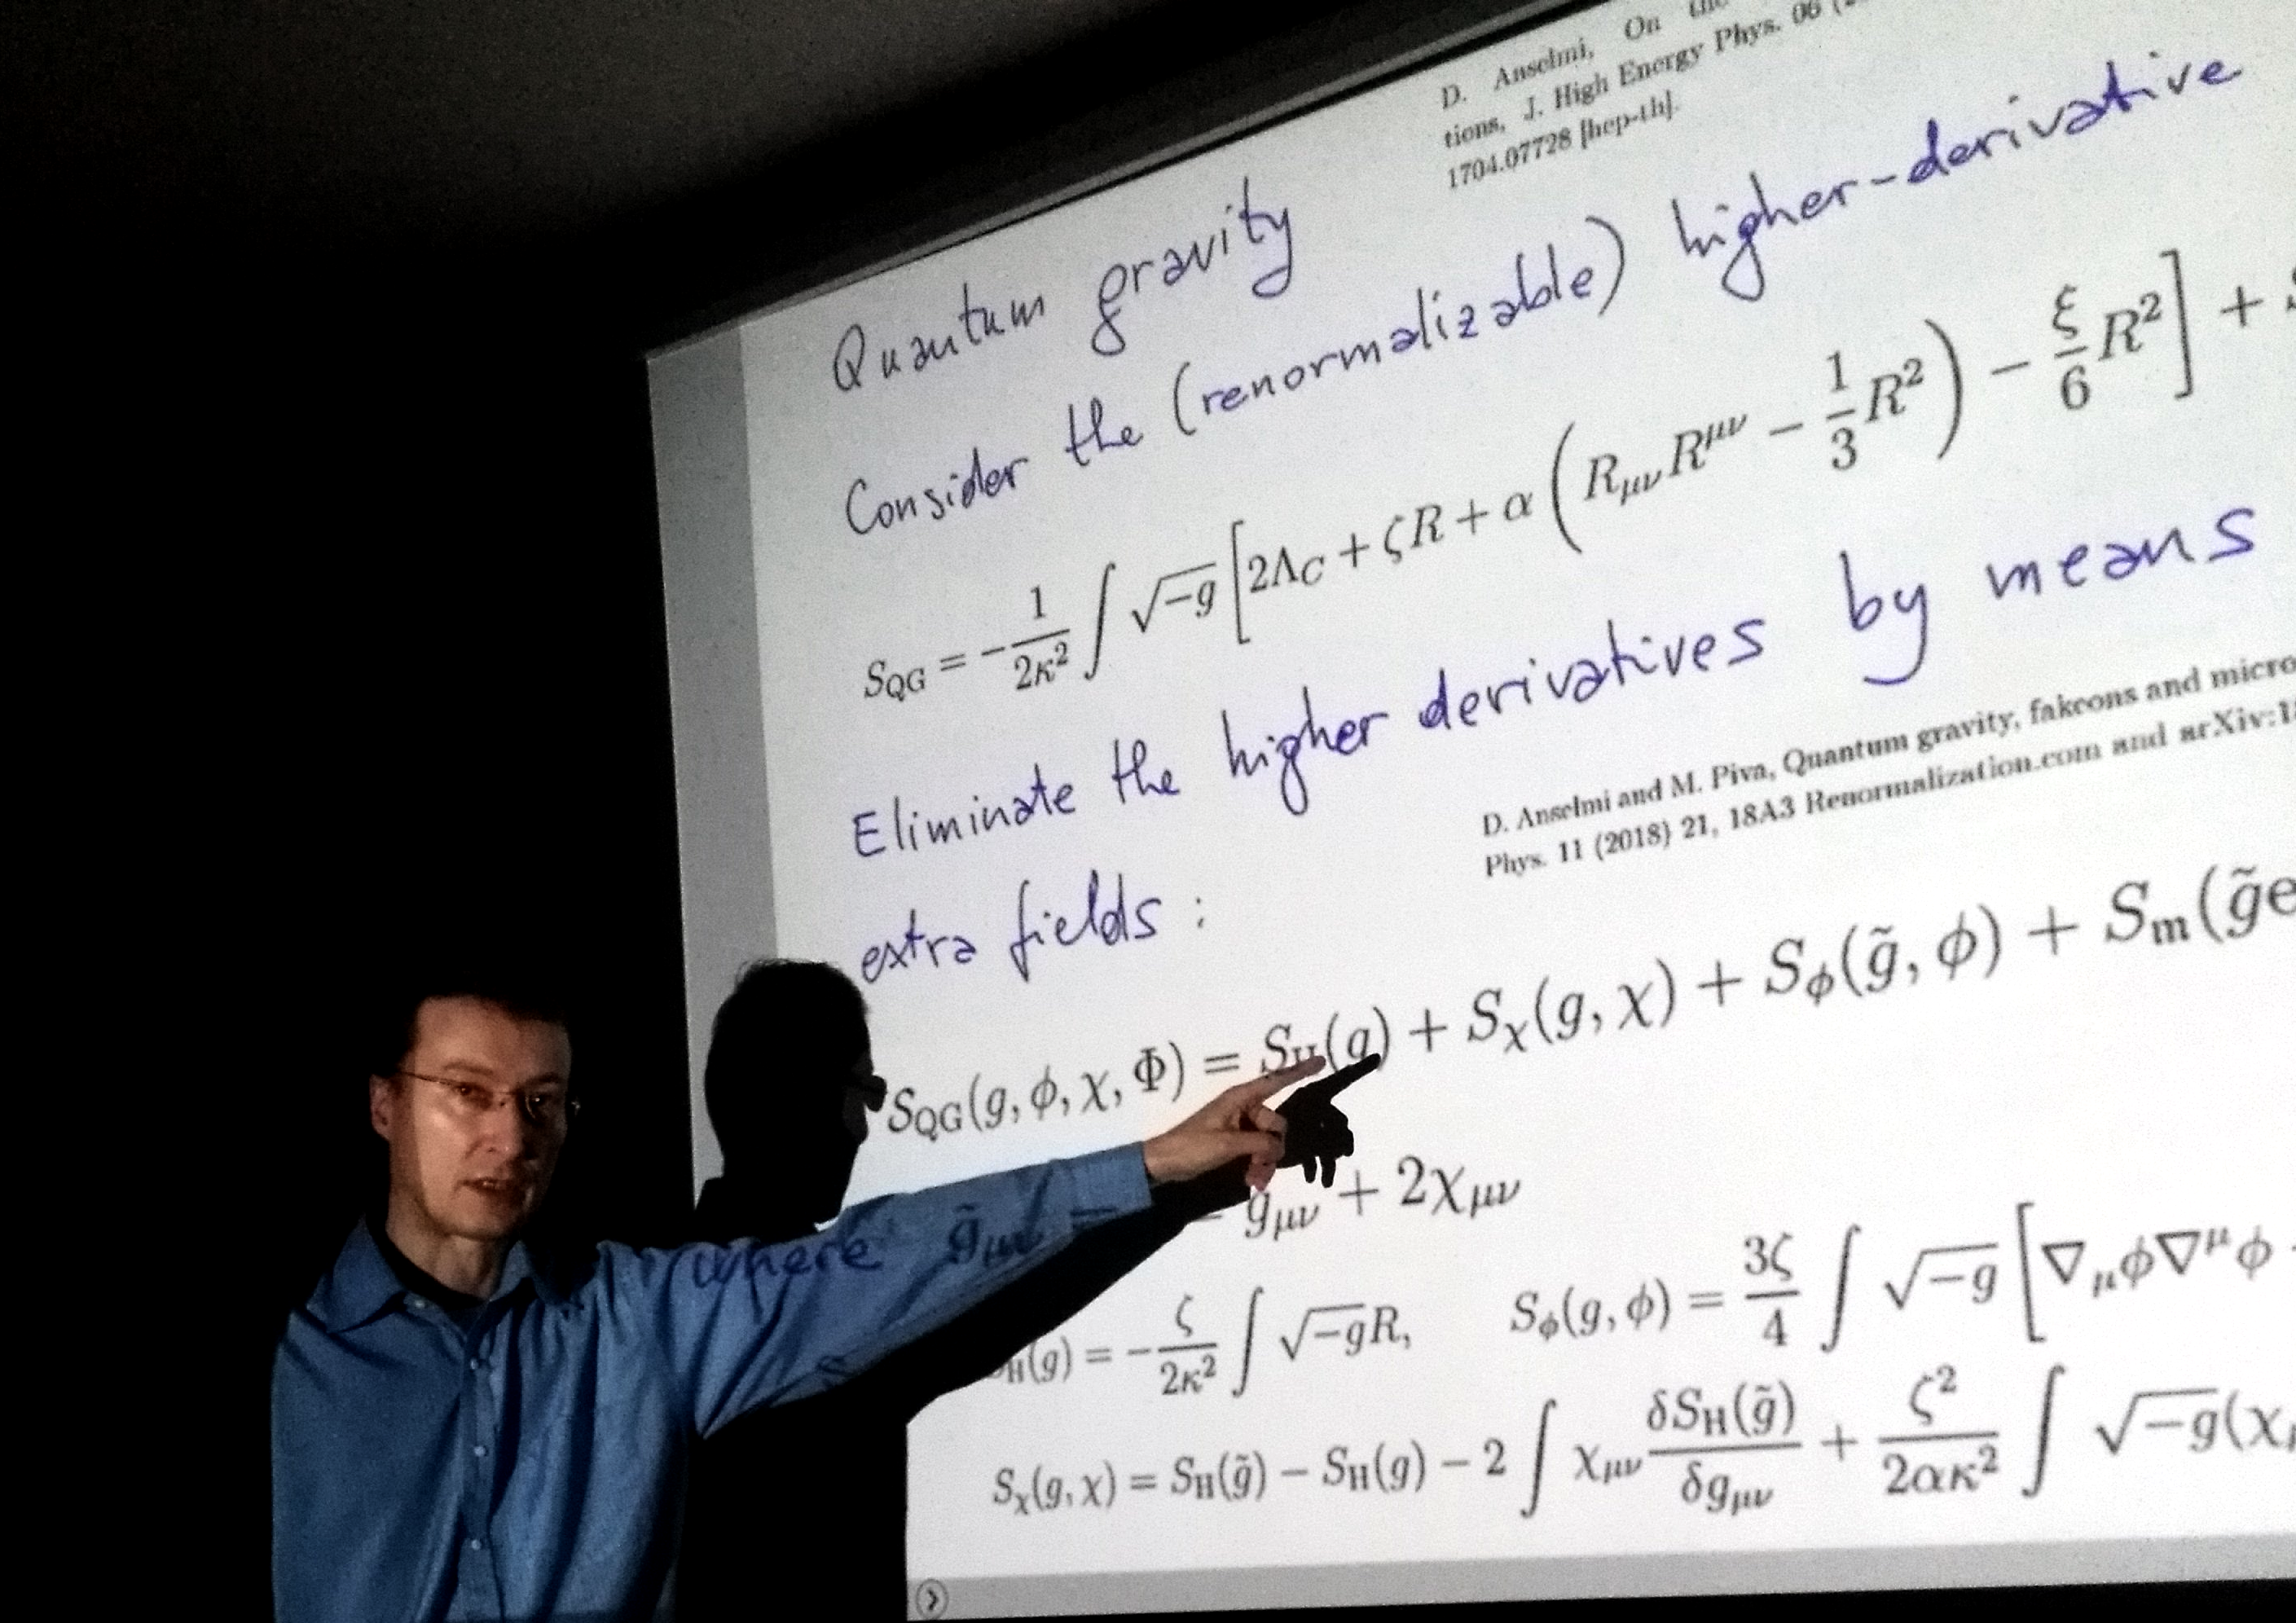 D. Anselmi, On the
tions, J. High Energy Phys. 06
1704.07728 [hep-th].
Quantum gravity
Consider the (renormalizable) higher-derivative
S_QG = -\frac{1}{2κ²} ∫ √-g [2Λ_C + ζR + α (R_μν R^μν - \frac{1}{3} R²) - \frac{ξ}{6} R²] +
Eliminate the higher derivatives by means
D. Anselmi and M. Piva, Quantum gravity, fakeons and micro
Phys. 11 (2018) 21, 18A3 Renormalization.com and arXiv:1
extra fields :
S_QG(g, ϕ, χ, Φ) = S_H(g) + S_χ(g, χ) + S_ϕ(g̃, ϕ) + S_m(g̃e
where g̃_μν = g_μν + 2χ_μν
S_H(g) = -\frac{ζ}{2κ²} ∫ √-g R, S_ϕ(g, ϕ) = \frac{3ζ}{4} ∫ √-g [∇_μϕ∇^μϕ
S_χ(g, χ) = S_H(g̃) - S_H(g) - 2 ∫ χ_μν \frac{δS_H(g̃)}{δg_μν} + \frac{ζ²}{2ακ²} ∫ √-g (χ